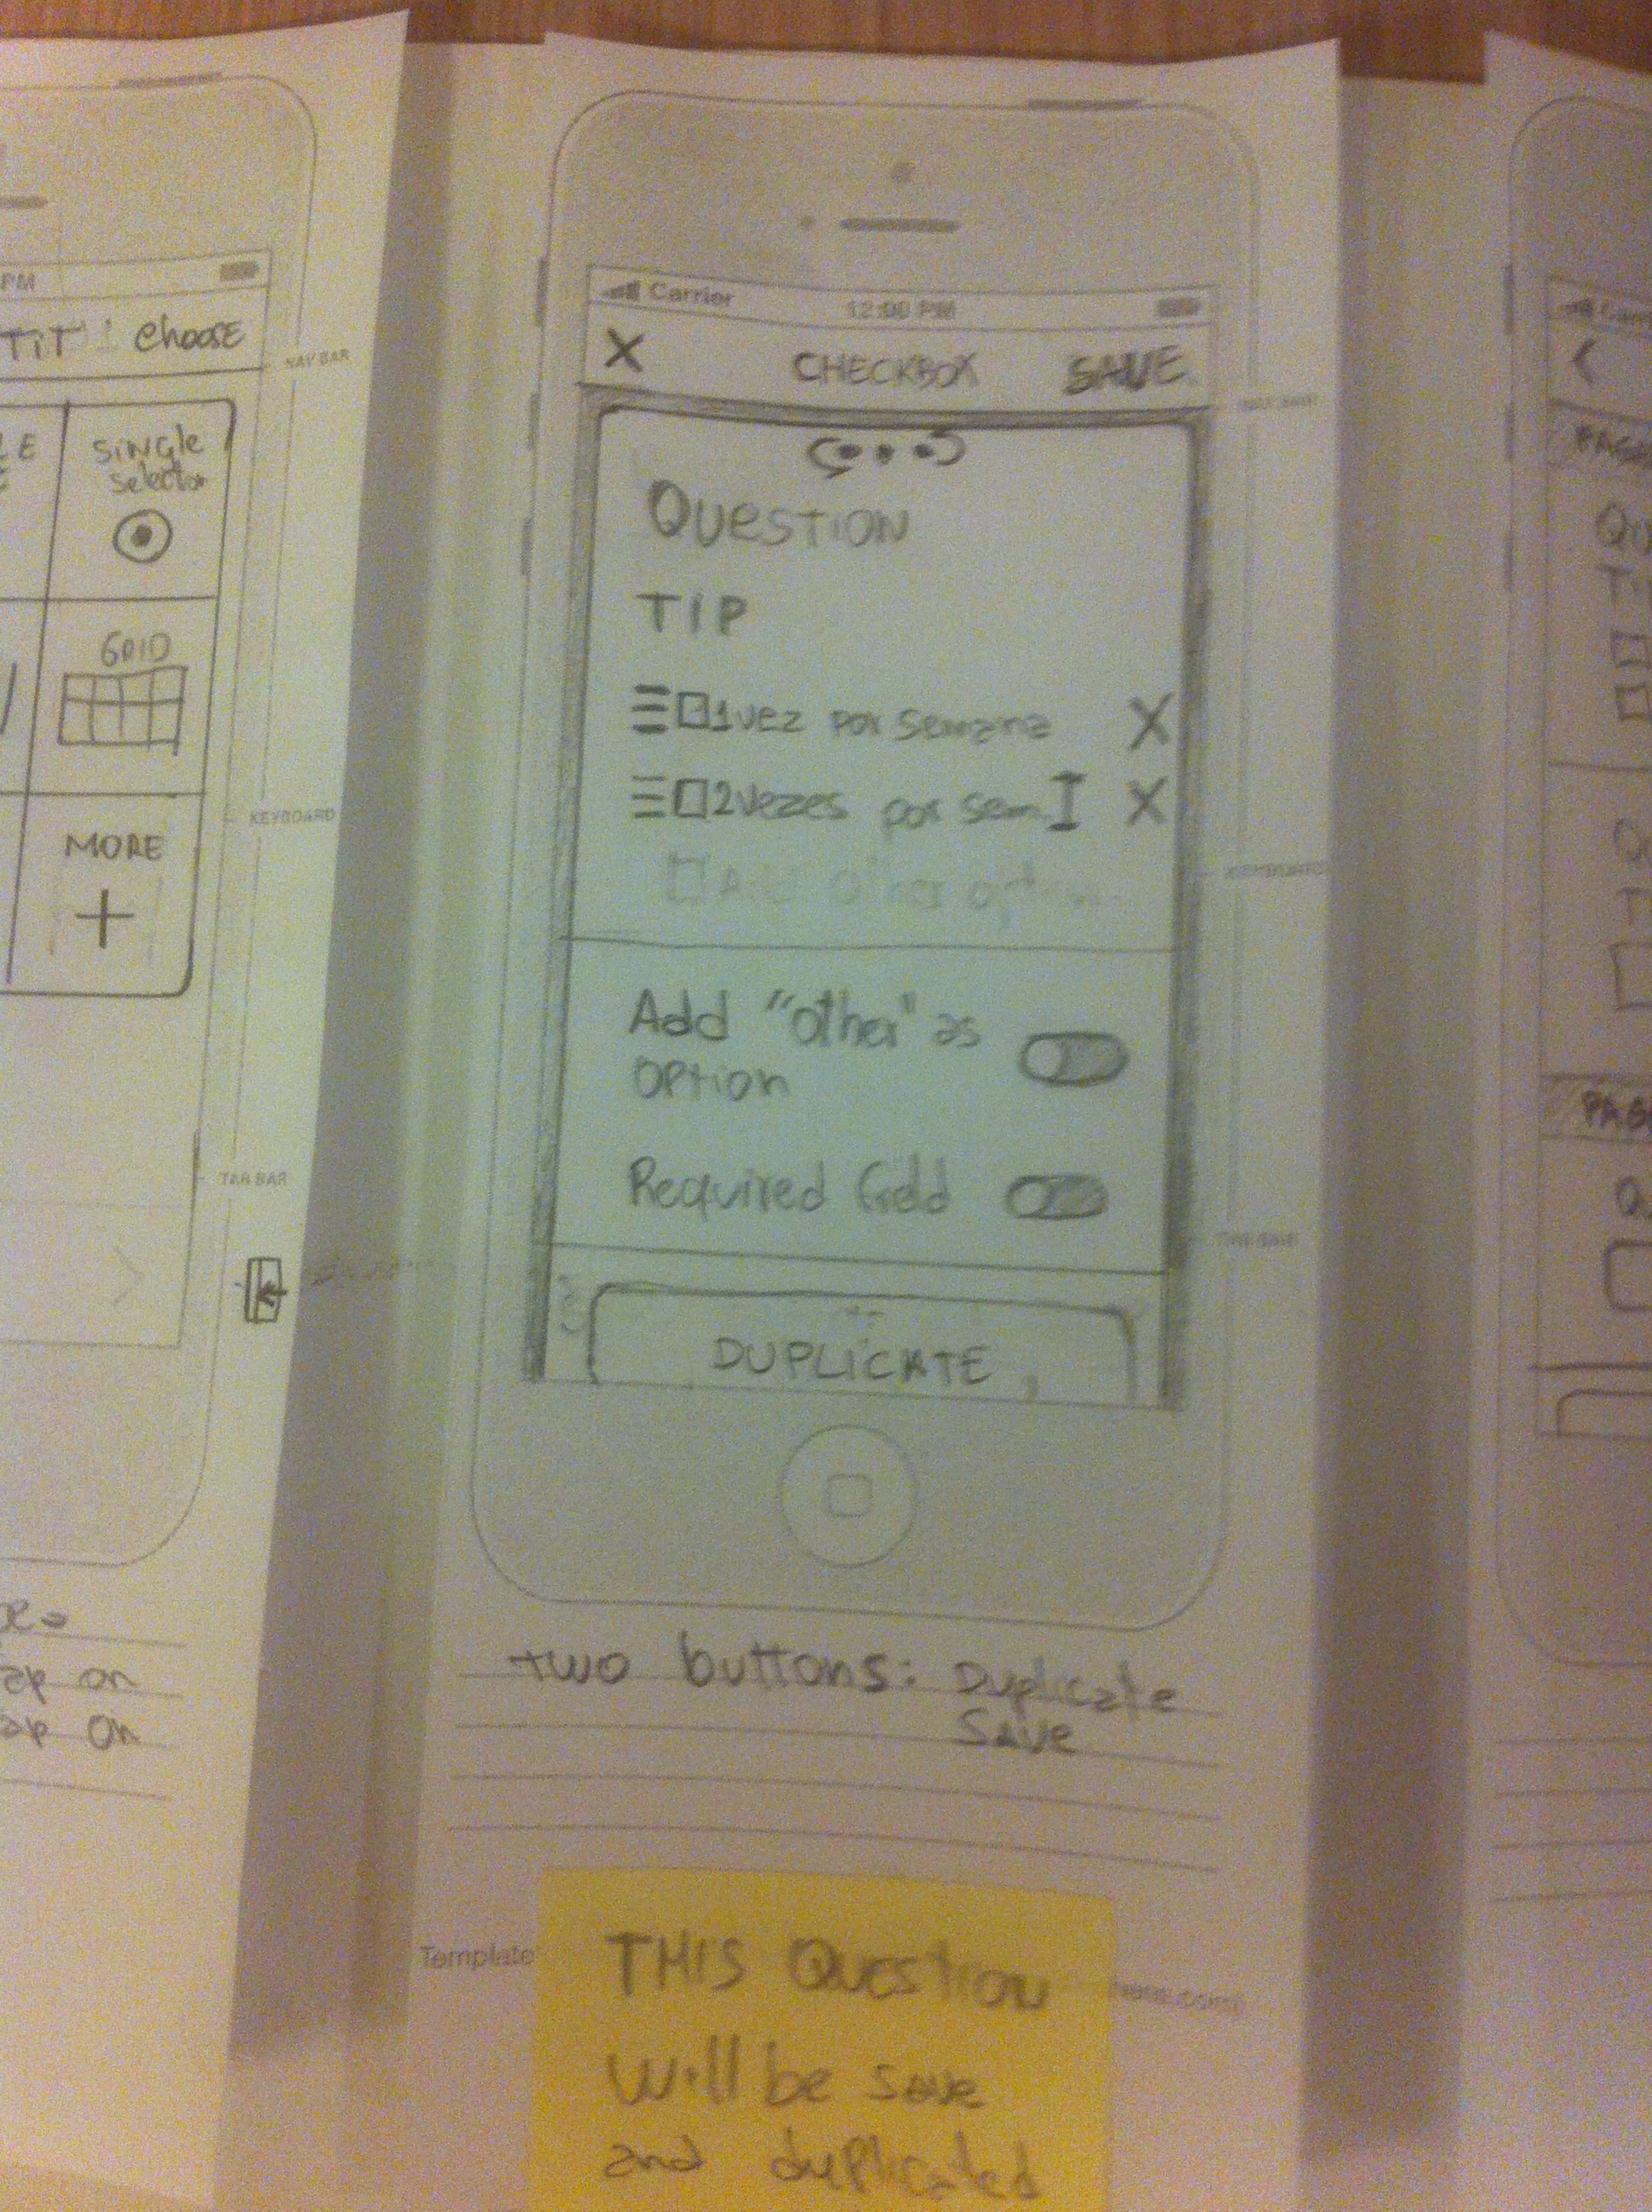 PM
Choose
NAV BAR
Single
Selector
GRID
KEYBOARD
MORE
TAB BAR
ap on
ap on
Carrier
12:00 PM
X
CHECKBOX
SAVE
NAV BAR
Question
TIP
1 vez por semana X
2 vezes por sem X
Add other option
KEYBOARD
Add "other" as
option
Required field
TAB BAR
DUPLICATE
two buttons: Duplicate
Save
Template
THIS Question
Will be save
and duplicated